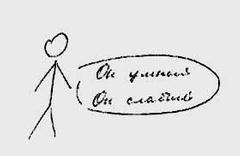 Он умный
Он слабый